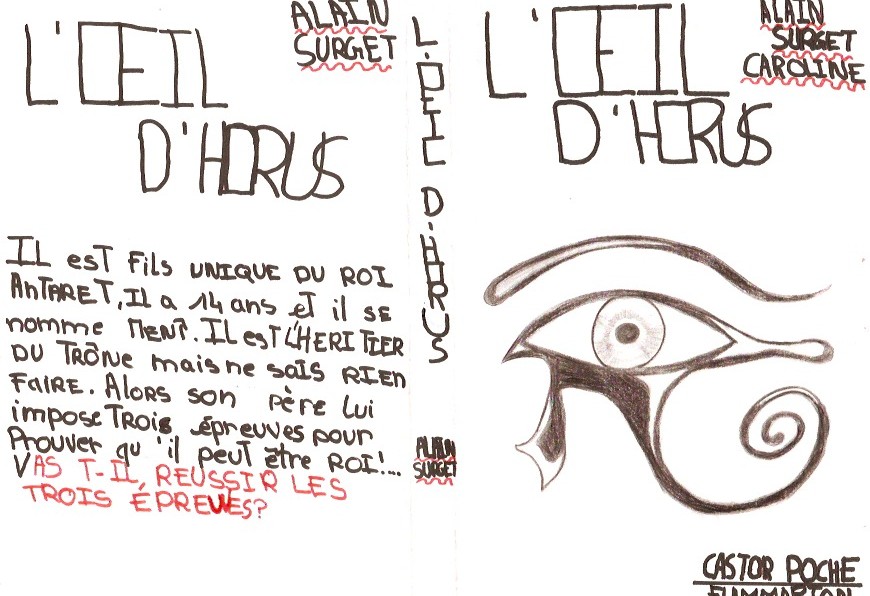 L'ŒIL
D'HORUS
ALAIN
SURGET
IL est Fils UNIQUE DU ROI
ANTARET, Il a 14 ans et il SE
nomme MENT. IL est L'HERITIER
DU TRÔNE mais ne sais RIEN
FAIRE. Alors son père Lui
impose Trois épreuves pour
Prouver qu'il peut être ROI!...
VAS T-IL, REUSSIR LES
TROIS ÉPREUVES?
L'ŒIL D'HORUS
ALAIN
SURGET
L'ŒIL
D'HORUS
ALAIN
SURGET
CAROLINE
CASTOR POCHE
FLAMMARION